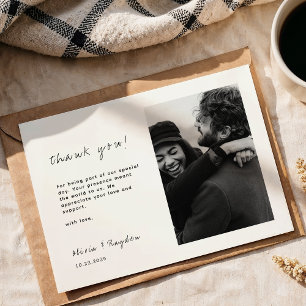 thank you!
For being part of our special
day. Your presence meant
the world to us. We
appreciate your love and
support.
with love,
Olivia & Brayden
10.23.2025